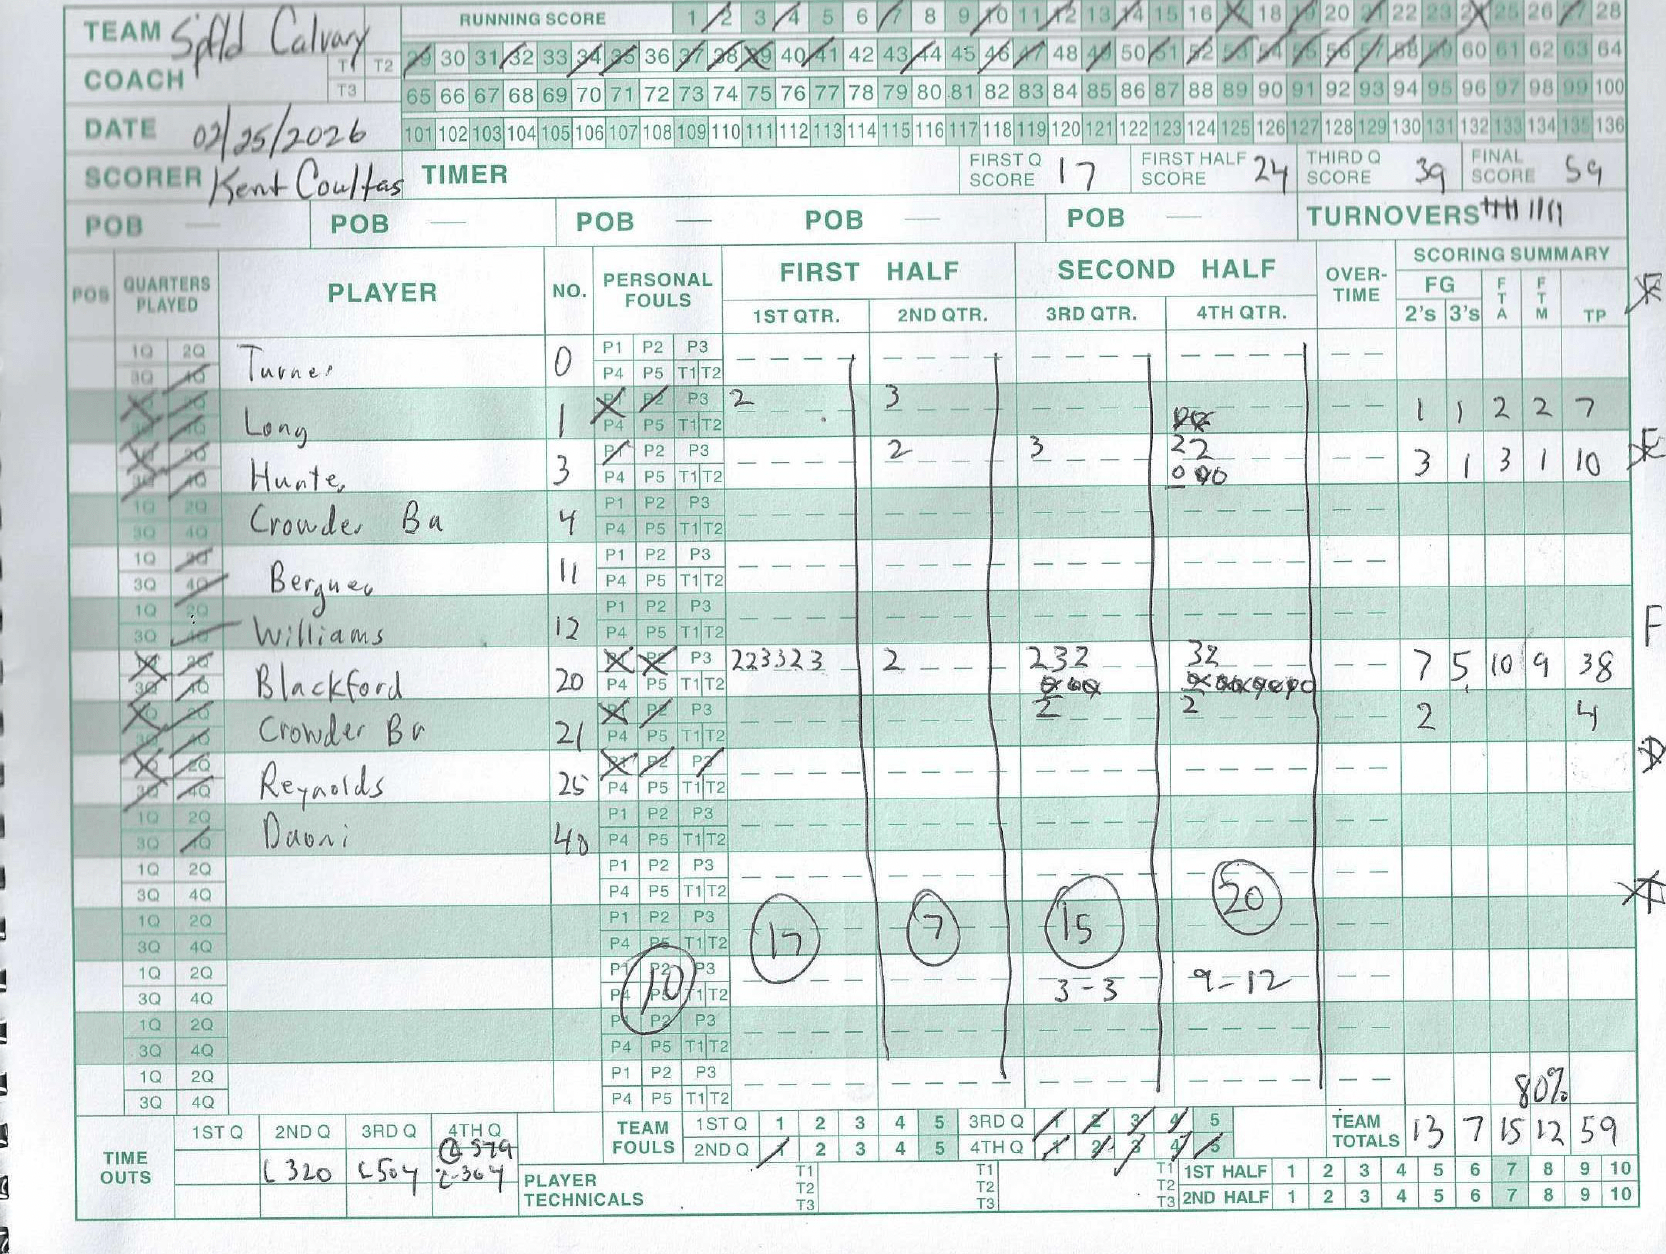 TEAM Spfld Calvary RUNNING SCORE 1 2 3 4 5 6 7 8 9 10 11 12 13 14 15 16 17 18 19 20 21 22 23 24 25 26 27 28
T1 T2 29 30 31 32 33 34 35 36 37 38 39 40 41 42 43 44 45 46 47 48 49 50 51 52 53 54 55 56 57 58 59 60 61 62 63 64
COACH T3 65 66 67 68 69 70 71 72 73 74 75 76 77 78 79 80 81 82 83 84 85 86 87 88 89 90 91 92 93 94 95 96 97 98 99 100
DATE 02/25/2026 101 102 103 104 105 106 107 108 109 110 111 112 113 114 115 116 117 118 119 120 121 122 123 124 125 126 127 128 129 130 131 132 133 134 135 136
SCORER Kent Coultas TIMER FIRST Q SCORE 17 FIRST HALF SCORE 24 THIRD Q SCORE 39 FINAL SCORE 59
POB — POB — POB — POB — POB — TURNOVERS
POS QUARTERS PLAYED PLAYER NO. PERSONAL FOULS FIRST HALF SECOND HALF OVER-TIME SCORING SUMMARY
1ST QTR. 2ND QTR. 3RD QTR. 4TH QTR. FG 2's 3's FTA FTM TP
1Q 2Q Turner 0 P1 P2 P3
3Q 4Q P4 P5 T1 T2
1Q 2Q Long 1 P1 P2 P3 2 3 1 1 2 2 7
3Q 4Q P4 P5 T1 T2
1Q 2Q Hunter 3 P1 P2 P3 2 3 22 3 1 3 1 10
3Q 4Q P4 P5 T1 T2
1Q 2Q Crowder Ba 4 P1 P2 P3
3Q 4Q P4 P5 T1 T2
1Q 2Q 11 P1 P2 P3
3Q 4Q P4 P5 T1 T2
1Q 2Q Williams 12 P1 P2 P3
3Q 4Q P4 P5 T1 T2
1Q 2Q Blackford 20 P1 P2 P3 223323 2 232 32 7 5 10 9 38
3Q 4Q P4 P5 T1 T2
1Q 2Q Crowder Br 21 P1 P2 P3 2 2 2 4
3Q 4Q P4 P5 T1 T2
1Q 2Q Reynolds 25 P1 P2 P3
3Q 4Q P4 P5 T1 T2
1Q 2Q 40 P1 P2 P3
3Q 4Q P4 P5 T1 T2
1Q 2Q P1 P2 P3
3Q 4Q P4 P5 T1 T2
1Q 2Q P1 P2 P3 17 7 15 20
3Q 4Q P4 P5 T1 T2
1Q 2Q P1 P2 P3 3-3 9-12
3Q 4Q P4 P5 T1 T2 10
1Q 2Q P1 P2 P3
3Q 4Q P4 P5 T1 T2
1Q 2Q P1 P2 P3
3Q 4Q P4 P5 T1 T2 80%
TIME OUTS 1ST Q 2ND Q 3RD Q 4TH Q TEAM FOULS 1ST Q 1 2 3 4 5 3RD Q 1 2 3 4 5 TEAM TOTALS 13 7 15 12 59
2ND Q 1 2 3 4 5 4TH Q 1 2 3 4 5
320 504 PLAYER TECHNICALS T1 T1 T1 1ST HALF 1 2 3 4 5 6 7 8 9 10
T2 T2 T2 2ND HALF 1 2 3 4 5 6 7 8 9 10
T3 T3 T3
F